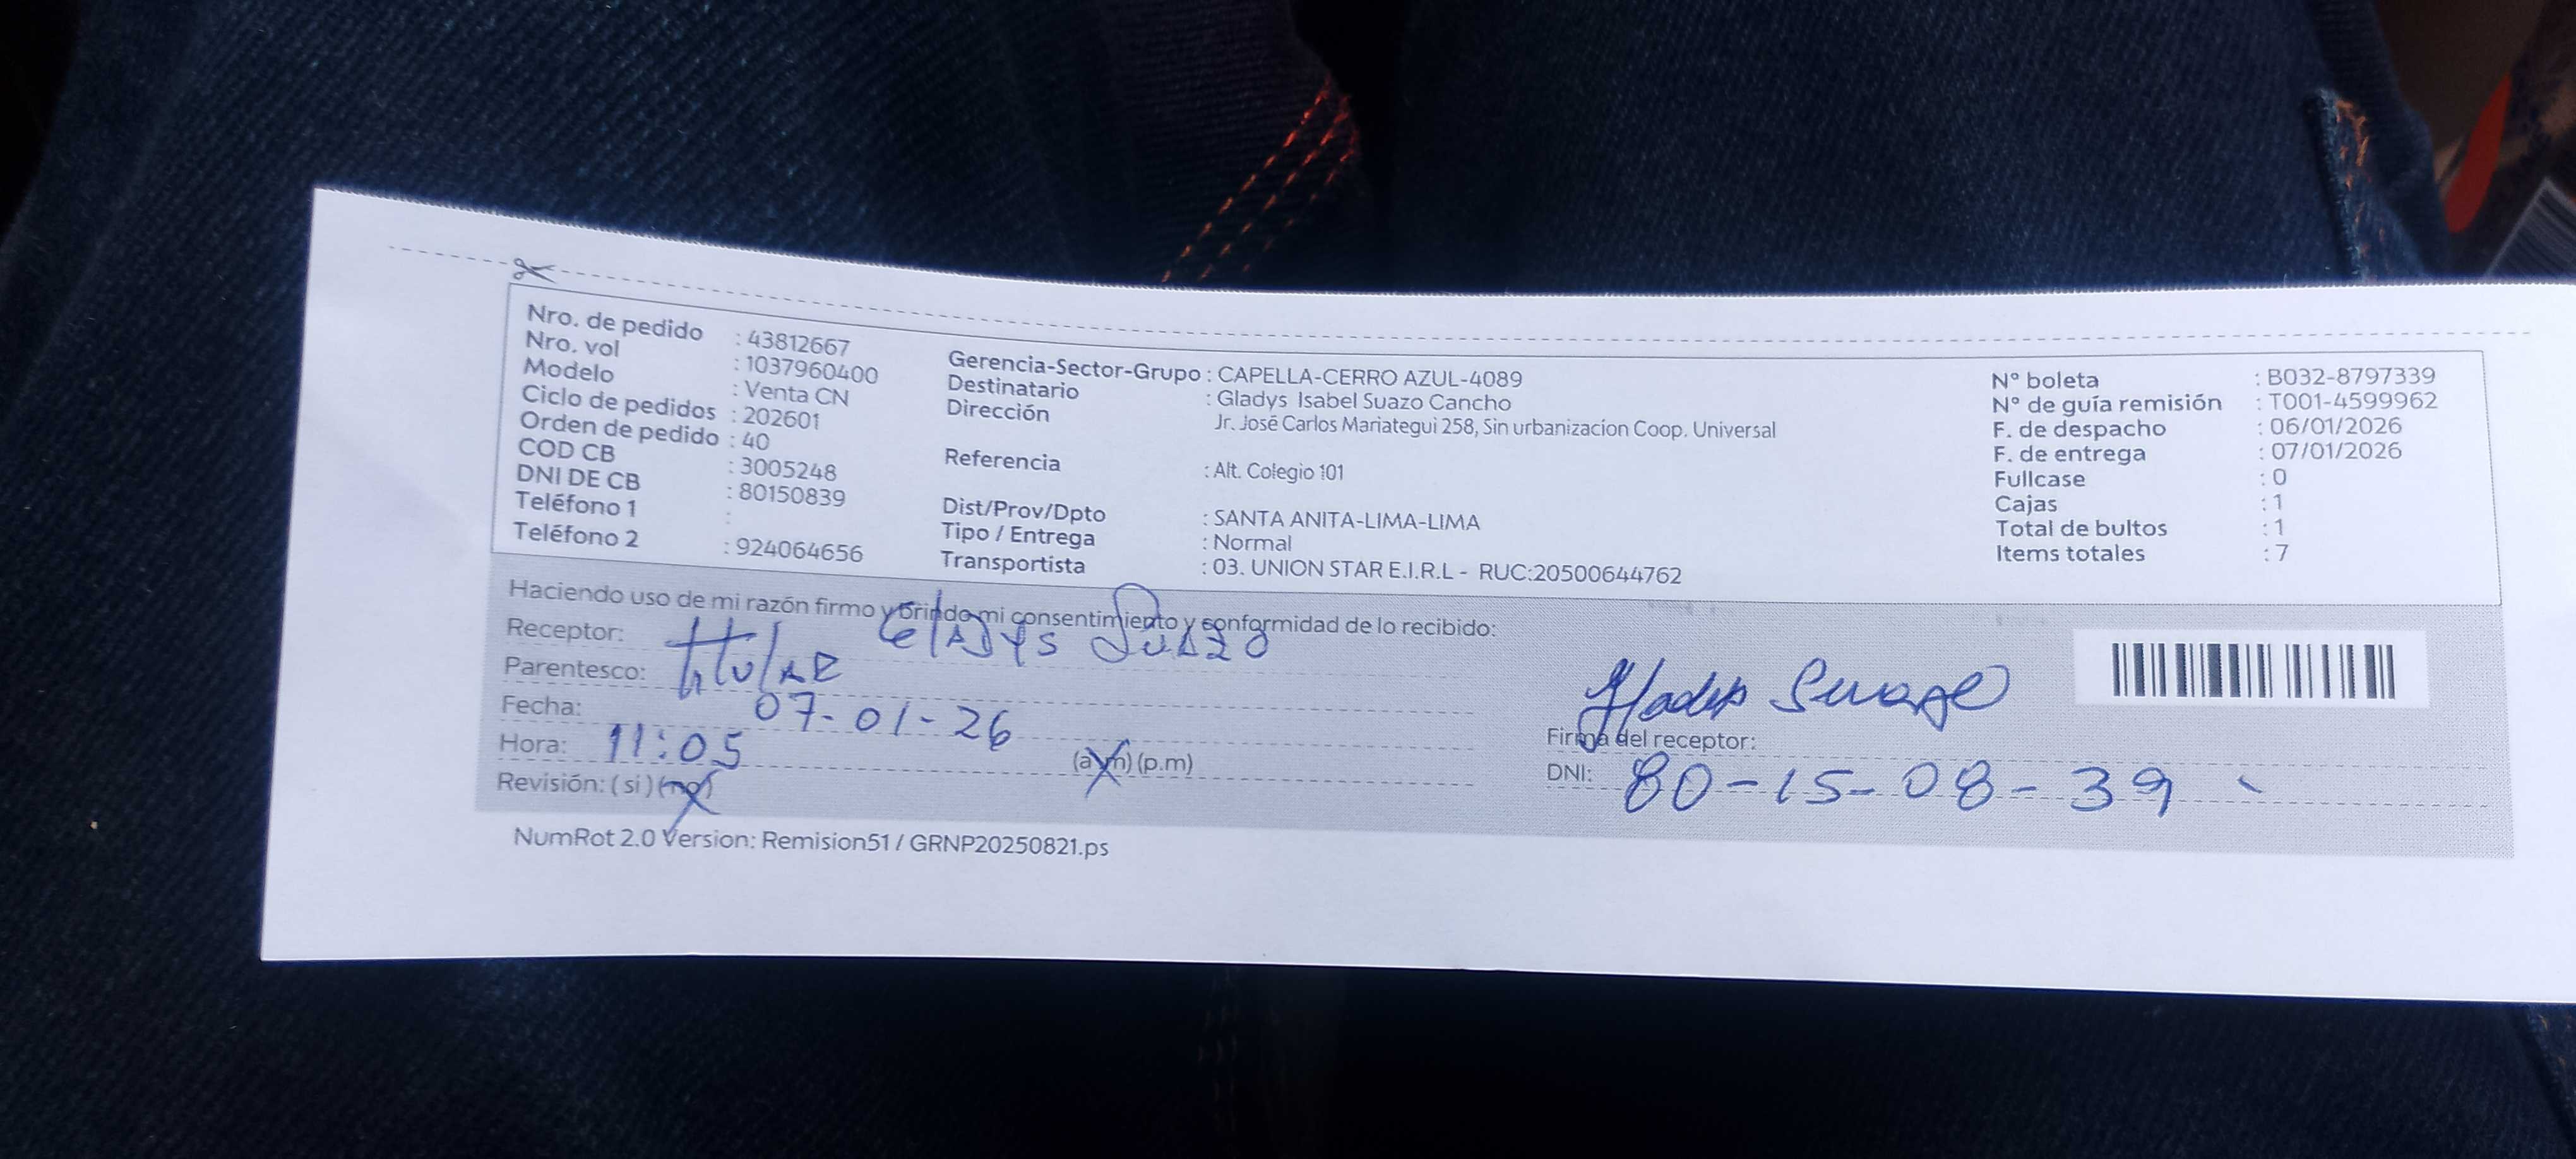 Nro. de pedido : 43812667
Nro. vol : 1037960400
Modelo : Venta CN
Ciclo de pedidos : 202601
Orden de pedido : 40
COD CB : 3005248
DNI DE CB : 80150839
Teléfono 1 :
Teléfono 2 : 924064656
Gerencia-Sector-Grupo : CAPELLA-CERRO AZUL-4089
Destinatario : Gladys Isabel Suazo Cancho
Dirección Jr. José Carlos Mariategui 258, Sin urbanizacion Coop. Universal
Referencia : Alt. Colegio 101
Dist/Prov/Dpto : SANTA ANITA-LIMA-LIMA
Tipo / Entrega : Normal
Transportista : 03. UNION STAR E.I.R.L - RUC:20500644762
N° boleta : B032-8797339
N° de guía remisión : T001-4599962
F. de despacho : 06/01/2026
F. de entrega : 07/01/2026
Fullcase : 0
Cajas : 1
Total de bultos : 1
Items totales : 7
Haciendo uso de mi razón firmo y brindo mi consentimiento y conformidad de lo recibido:
Receptor: GlAdys SuAzo
Parentesco: titulAR
Fecha: 07-01-26
Hora: 11:05 (a.m) (p.m)
Revisión: ( si ) (no)
Gladys Suazo
Firma del receptor:
DNI: 80-15-08-39
NumRot 2.0 Version: Remision51 / GRNP20250821.ps